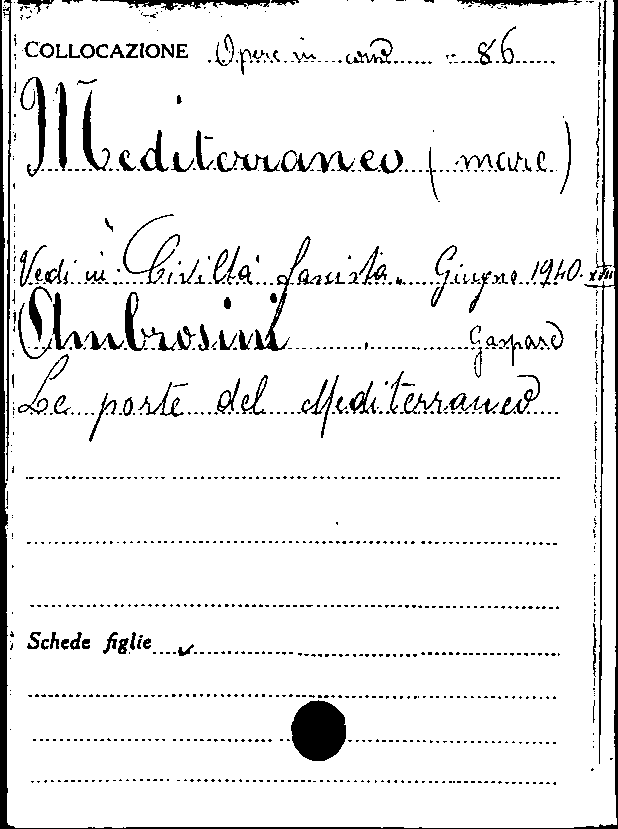 COLLOCAZIONE Opere in cors - 86
Mediterraneo (mare)
Vedi in "Civiltà fascista" Giugno 1940. XVIII
Ambrosini Gaspare
Le porte del Mediterraneo
Schede figlie